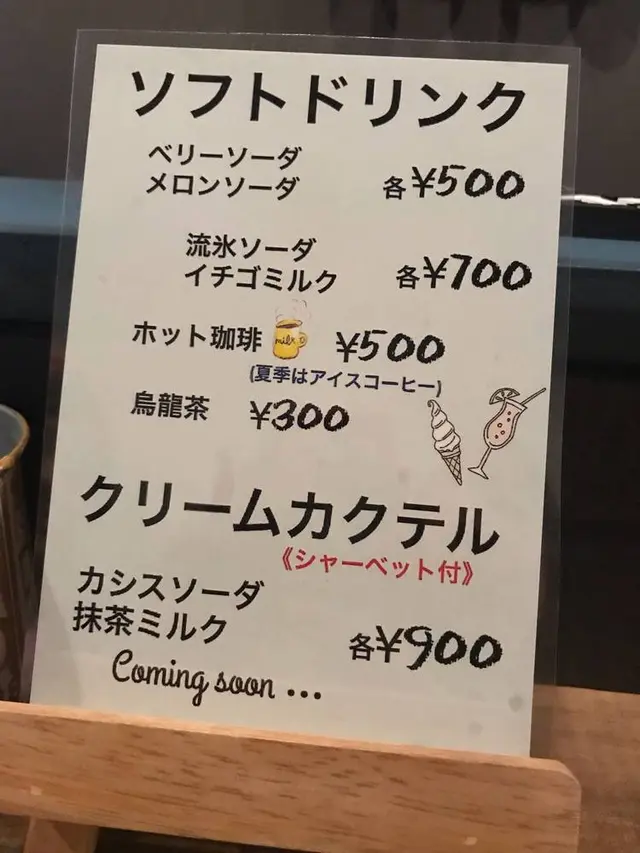 ソフトドリンク
ベリーソーダ
メロンソーダ 各¥500
流氷ソーダ
イチゴミルク 各¥700
ホット珈琲 milk ¥500
(夏季はアイスコーヒー)
烏龍茶 ¥300
クリームカクテル
《シャーベット付》
カシスソーダ
抹茶ミルク 各¥900
Coming soon ...